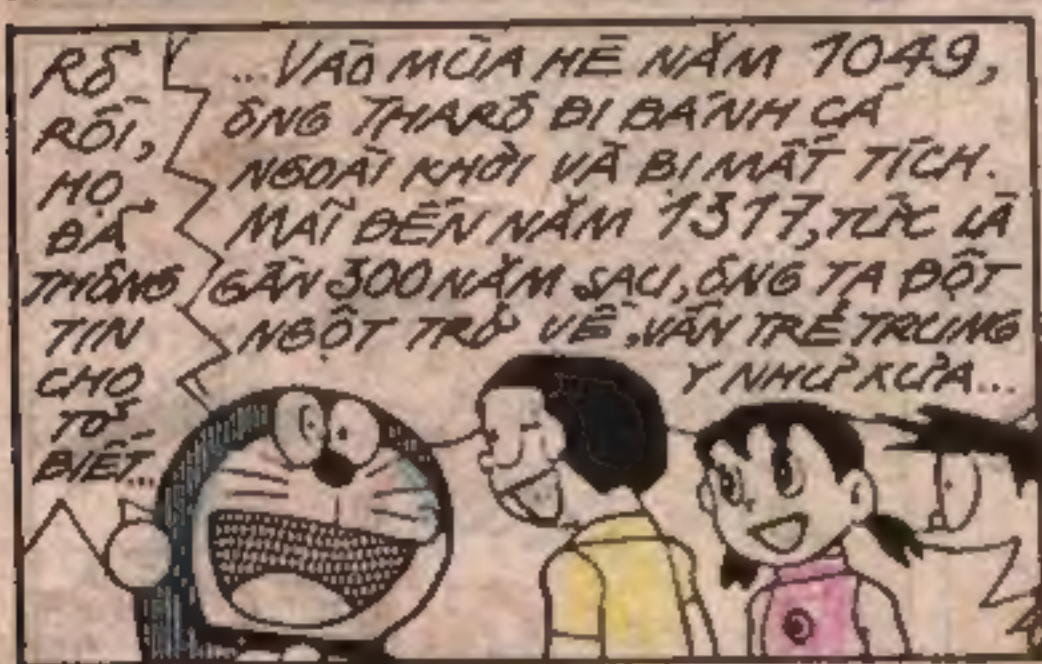 RÕ
RỒI,
HỌ
ĐÃ
THÔNG
TIN
CHO
TỚ
BIẾT...
...VÀO MÙA HÈ NĂM 1049,
ÔNG THARÔ ĐI ĐÁNH CÁ
NGOÀI KHƠI VÀ BỊ MẤT TÍCH.
MÃI ĐẾN NĂM 1317, TỨC LÀ
GẦN 300 NĂM SAU, ÔNG TA ĐỘT
NGỘT TRỞ VỀ, VẪN TRẺ TRUNG
Y NHƯ XƯA...